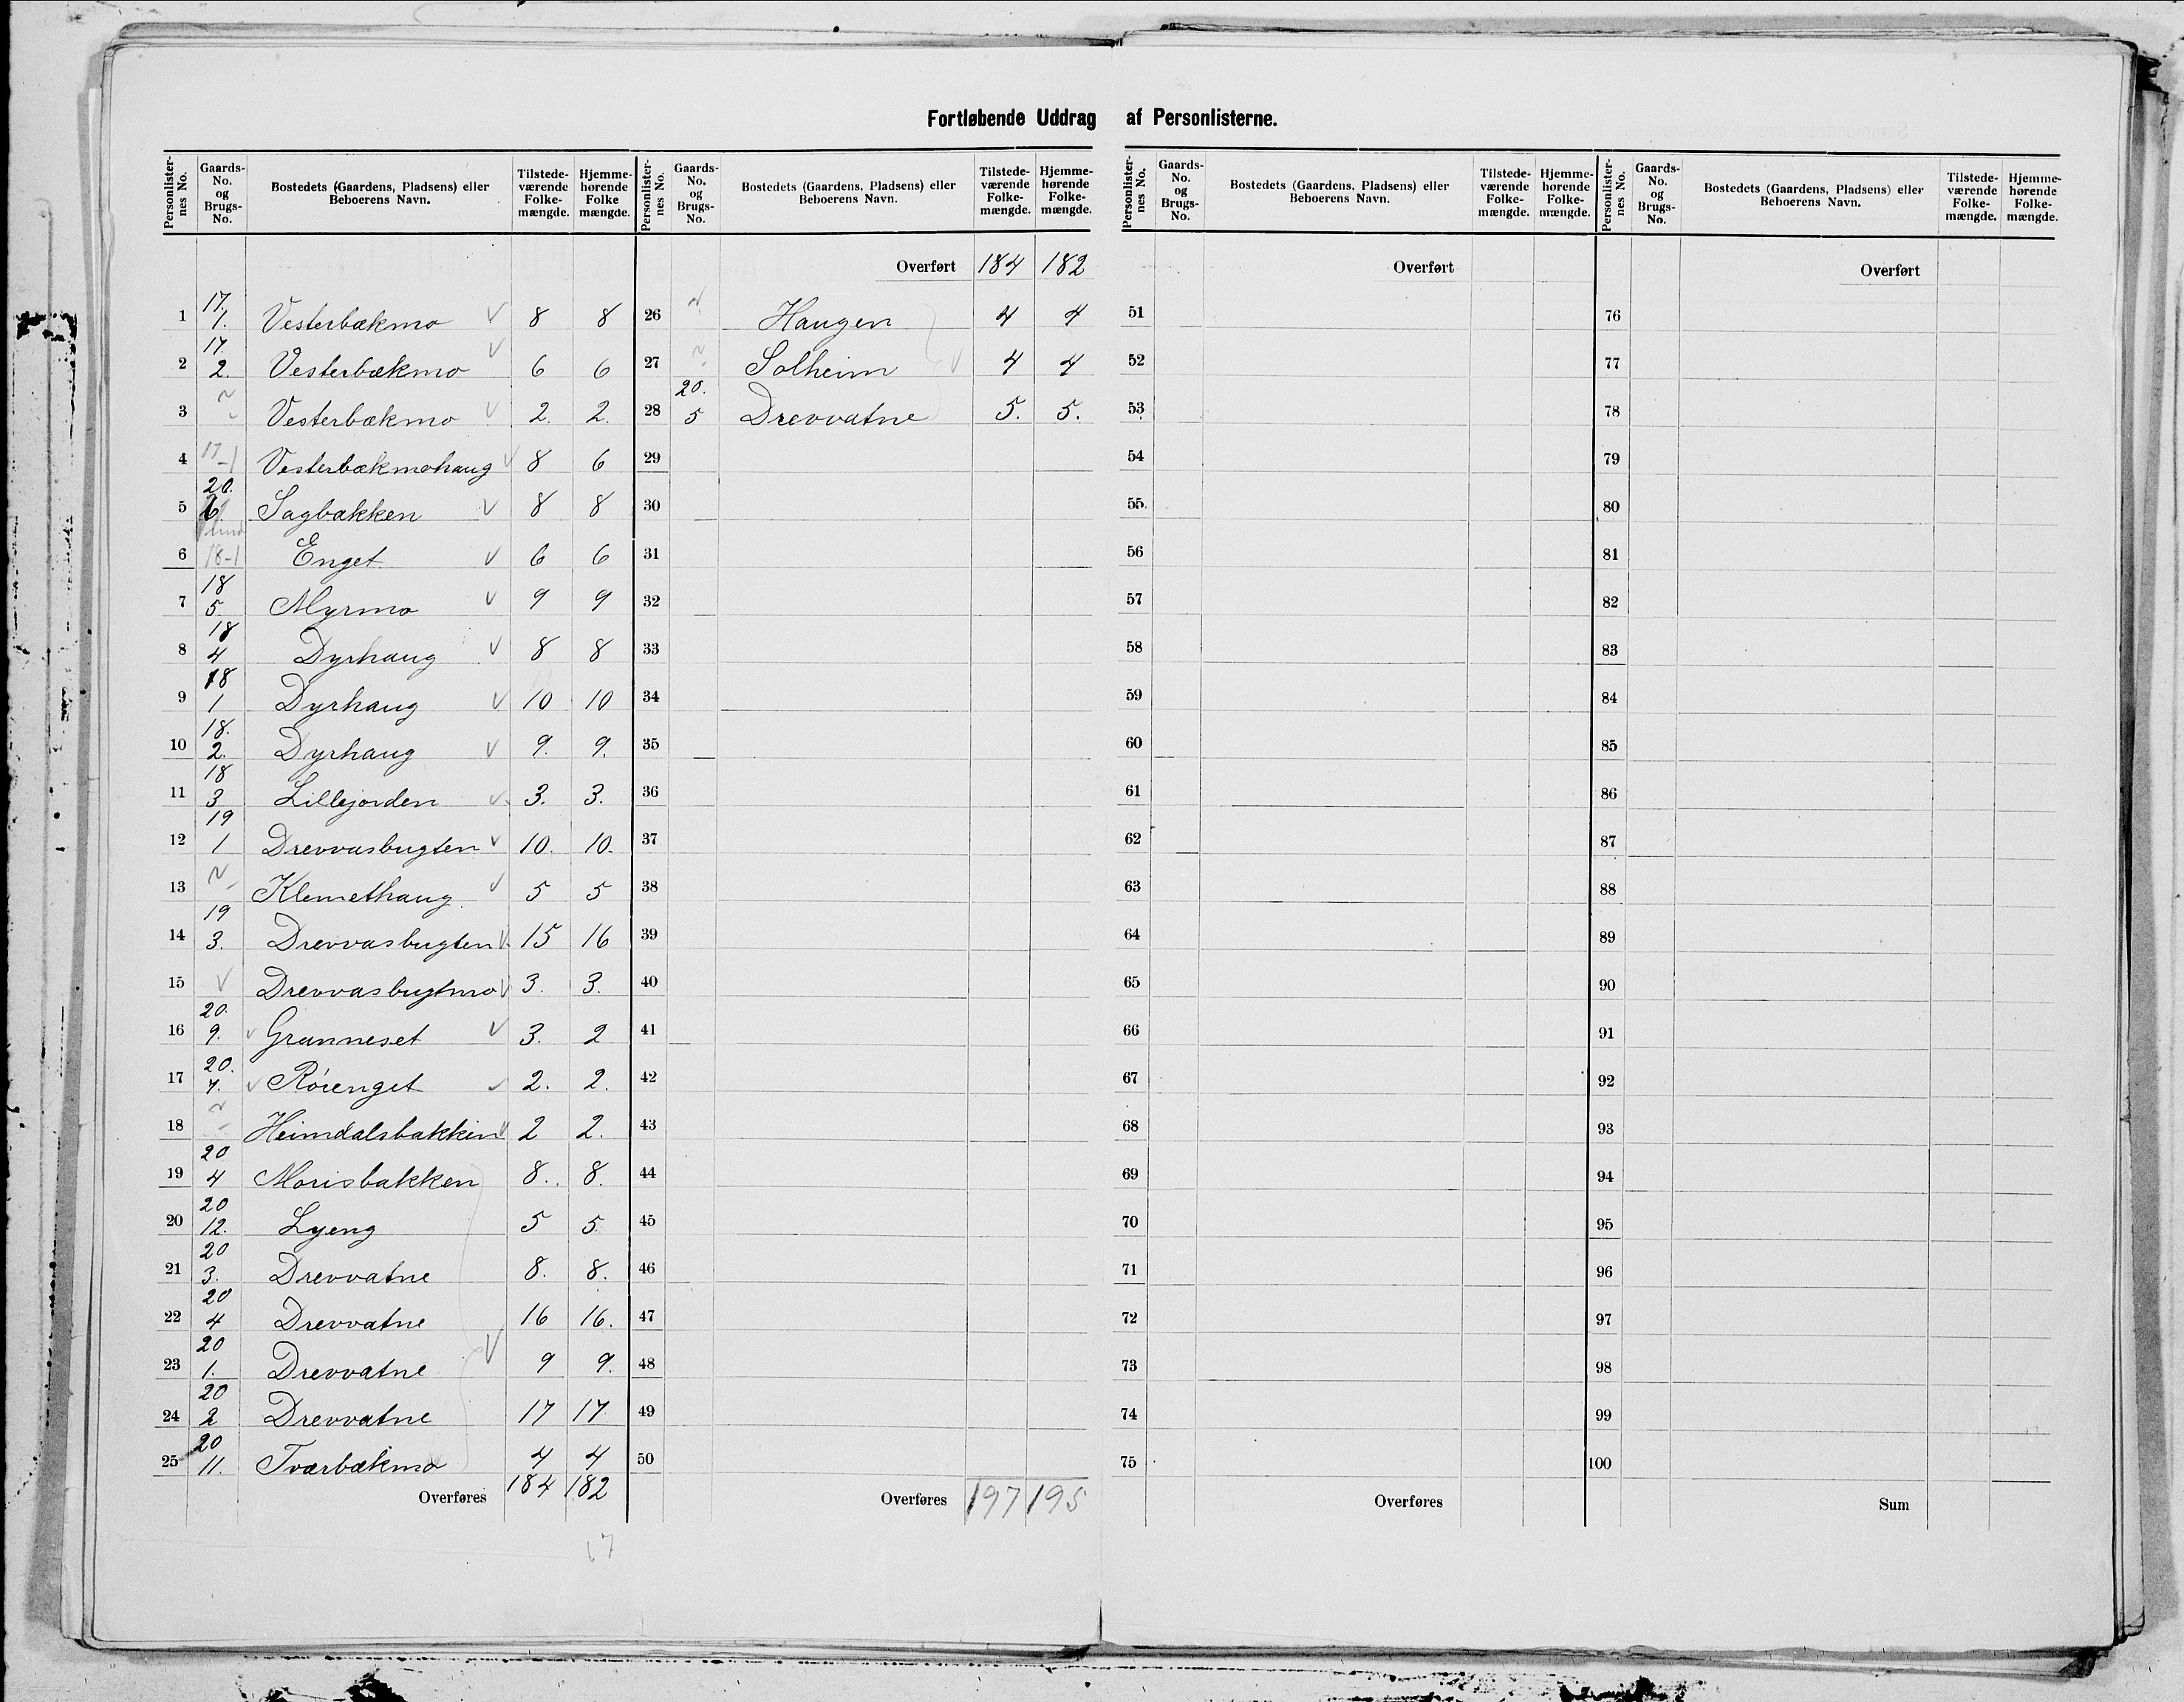 Fortløbende Uddrag af Personlisterne.
Personlister-nes No. | Gaards-No. og Brugs-No. | Bostedets (Gaardens, Pladsens) eller Beboerens Navn. | Tilstede-værende Folke-mængde. | Hjemme-hørende Folke mængde.
1 | 17. 1. | Vesterbækmo | 8 | 8
2 | 17. 2. | Vesterbækmo | 6 | 6
3 | ~ | Vesterbækmo | 2. | 2.
4 | 17-1 | Vesterbækmohaug | 8 | 6
5 | 20. 6 | Sagbakken | 8 | 8
6 | 18-1 | Enget | 6 | 6
7 | 18 5. | Myrmo | 9 | 9
8 | 18 4 | Dyrhaug | 8 | 8
9 | 18 1 | Dyrhaug | 10 | 10
10 | 18. 2. | Dyrhaug | 9. | 9.
11 | 18 3 | Lillejorden | 3. | 3.
12 | 19 1 | Drevvasbugten | 10. | 10.
13 | ~ | Klemethaug | 5 | 5
14 | 19 3. | Drevvasbugten | 15 | 16
15 | Drevvasbugtmo | 3. | 3.
16 | 20. 9. | Granneset | 3. | 2
17 | 20. 7. | Röienget | 2. | 2.
18 | ~ | Heimdalsbakken | 2 | 2.
19 | 20 4 | Morisbakken | 8. | 8.
20 | 20 12. | Lyeng | 5 | 5.
21 | 20 3. | Drevvatne | 8. | 8.
22 | 20 4 | Drevvatne | 16 | 16.
23 | 20 1. | Drevvatne | 9 | 9.
24 | 20 2 | Drevvatne | 17 | 17
25 | 20 11. | Tværbækmo | 4 | 4
Overføres | 184 | 182
Personlister-nes No. | Gaards-No. og Brugs-No. | Bostedets (Gaardens, Pladsens) eller Beboerens Navn. | Tilstede-værende Folke-mængde. | Hjemme-hørende Folke-mængde.
Overført | 184 | 182
26 | ~ | Haugen | 4 | 4
27 | ~ | Solheim | 4 | 4
28 | 20. 5 | Drevvatne | 5. | 5.
29
30
31
32
33
34
35
36
37
38
39
40
41
42
43
44
45
46
47
48
49
50
Overføres | 197 | 195
Personlister-nes No. | Gaards-No. og Brugs-No. | Bostedets (Gaardens, Pladsens) eller Beboerens Navn. | Tilstede-værende Folke-mængde. | Hjemme-hørende Folke-mængde.
Overført
51
52
53
54
55
56
57
58
59
60
61
62
63
64
65
66
67
68
69
70
71
72
73
74
75
Overføres
Personlister-nes No. | Gaards-No. og Brugs-No. | Bostedets (Gaardens, Pladsens) eller Beboerens Navn. | Tilstede-værende Folke-mængde. | Hjemme-hørende Folke-mængde.
Overført
76
77
78
79
80
81
82
83
84
85
86
87
88
89
90
91
92
93
94
95
96
97
98
99
100
Sum